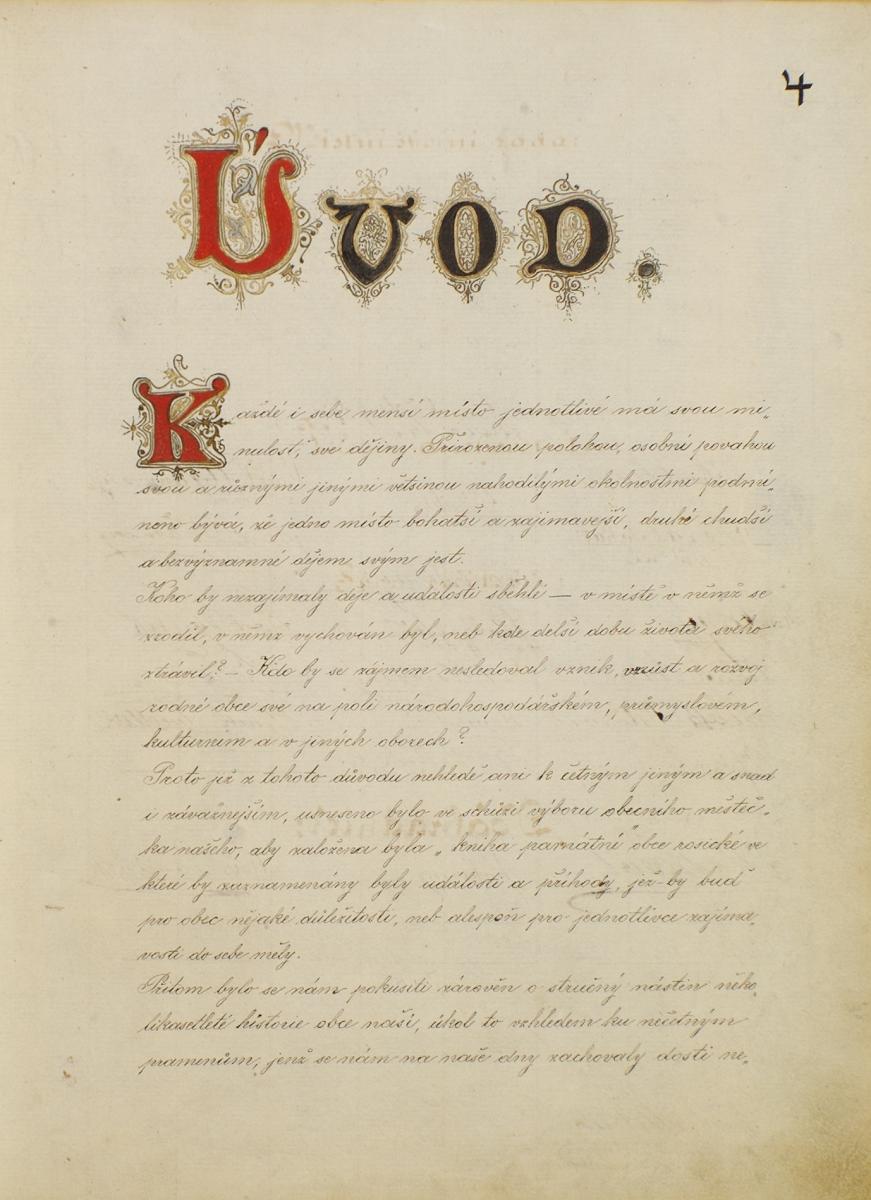 4
Úvod.
Každé i sebe menší místo jednotlivé má svou mi„
nulost, své dějiny. Přirozenou polohou, osobní povahou
svou a různými jinými většinou nahodilými okolnostmi podmí„
něno bývá, že jedno místo bohatší a zajímavější, druhé chudší
a bezvýznamné dějem svým jest.
Koho by nezajímaly děje a události sběhlé — v místě v němž se
zrodil, v němž vychován byl, neb kde delší dobu života svého
ztrávil? — Kdo by se zájmem nesledoval vznik, vzrůst a rozvoj
rodné obce své na poli národohospodářském, průmyslovém,
kulturním a v jiných oborech?
Proto již z tohoto důvodu nehledě ani k četným jiným a snad
i závažnejším, usneseno bylo ve schůzi výboru obecního městeč„
ka našeho, aby založena byla „kniha pamätní" obce rosické ve
které by zaznamenány byly události a příhody, jež-by buď
pro obec nějaké důležitosti, neb alespoň pro jednotlivce zajíma„
vosti do sebe měly.
Přitom bylo se nám pokusiti zároveň o stručný nástin něko„
likasetleté historie obce naší, úkol to vzhledem ku nečetným
pramenům, jenž se nám na naše dny zachovaly dosti ne„